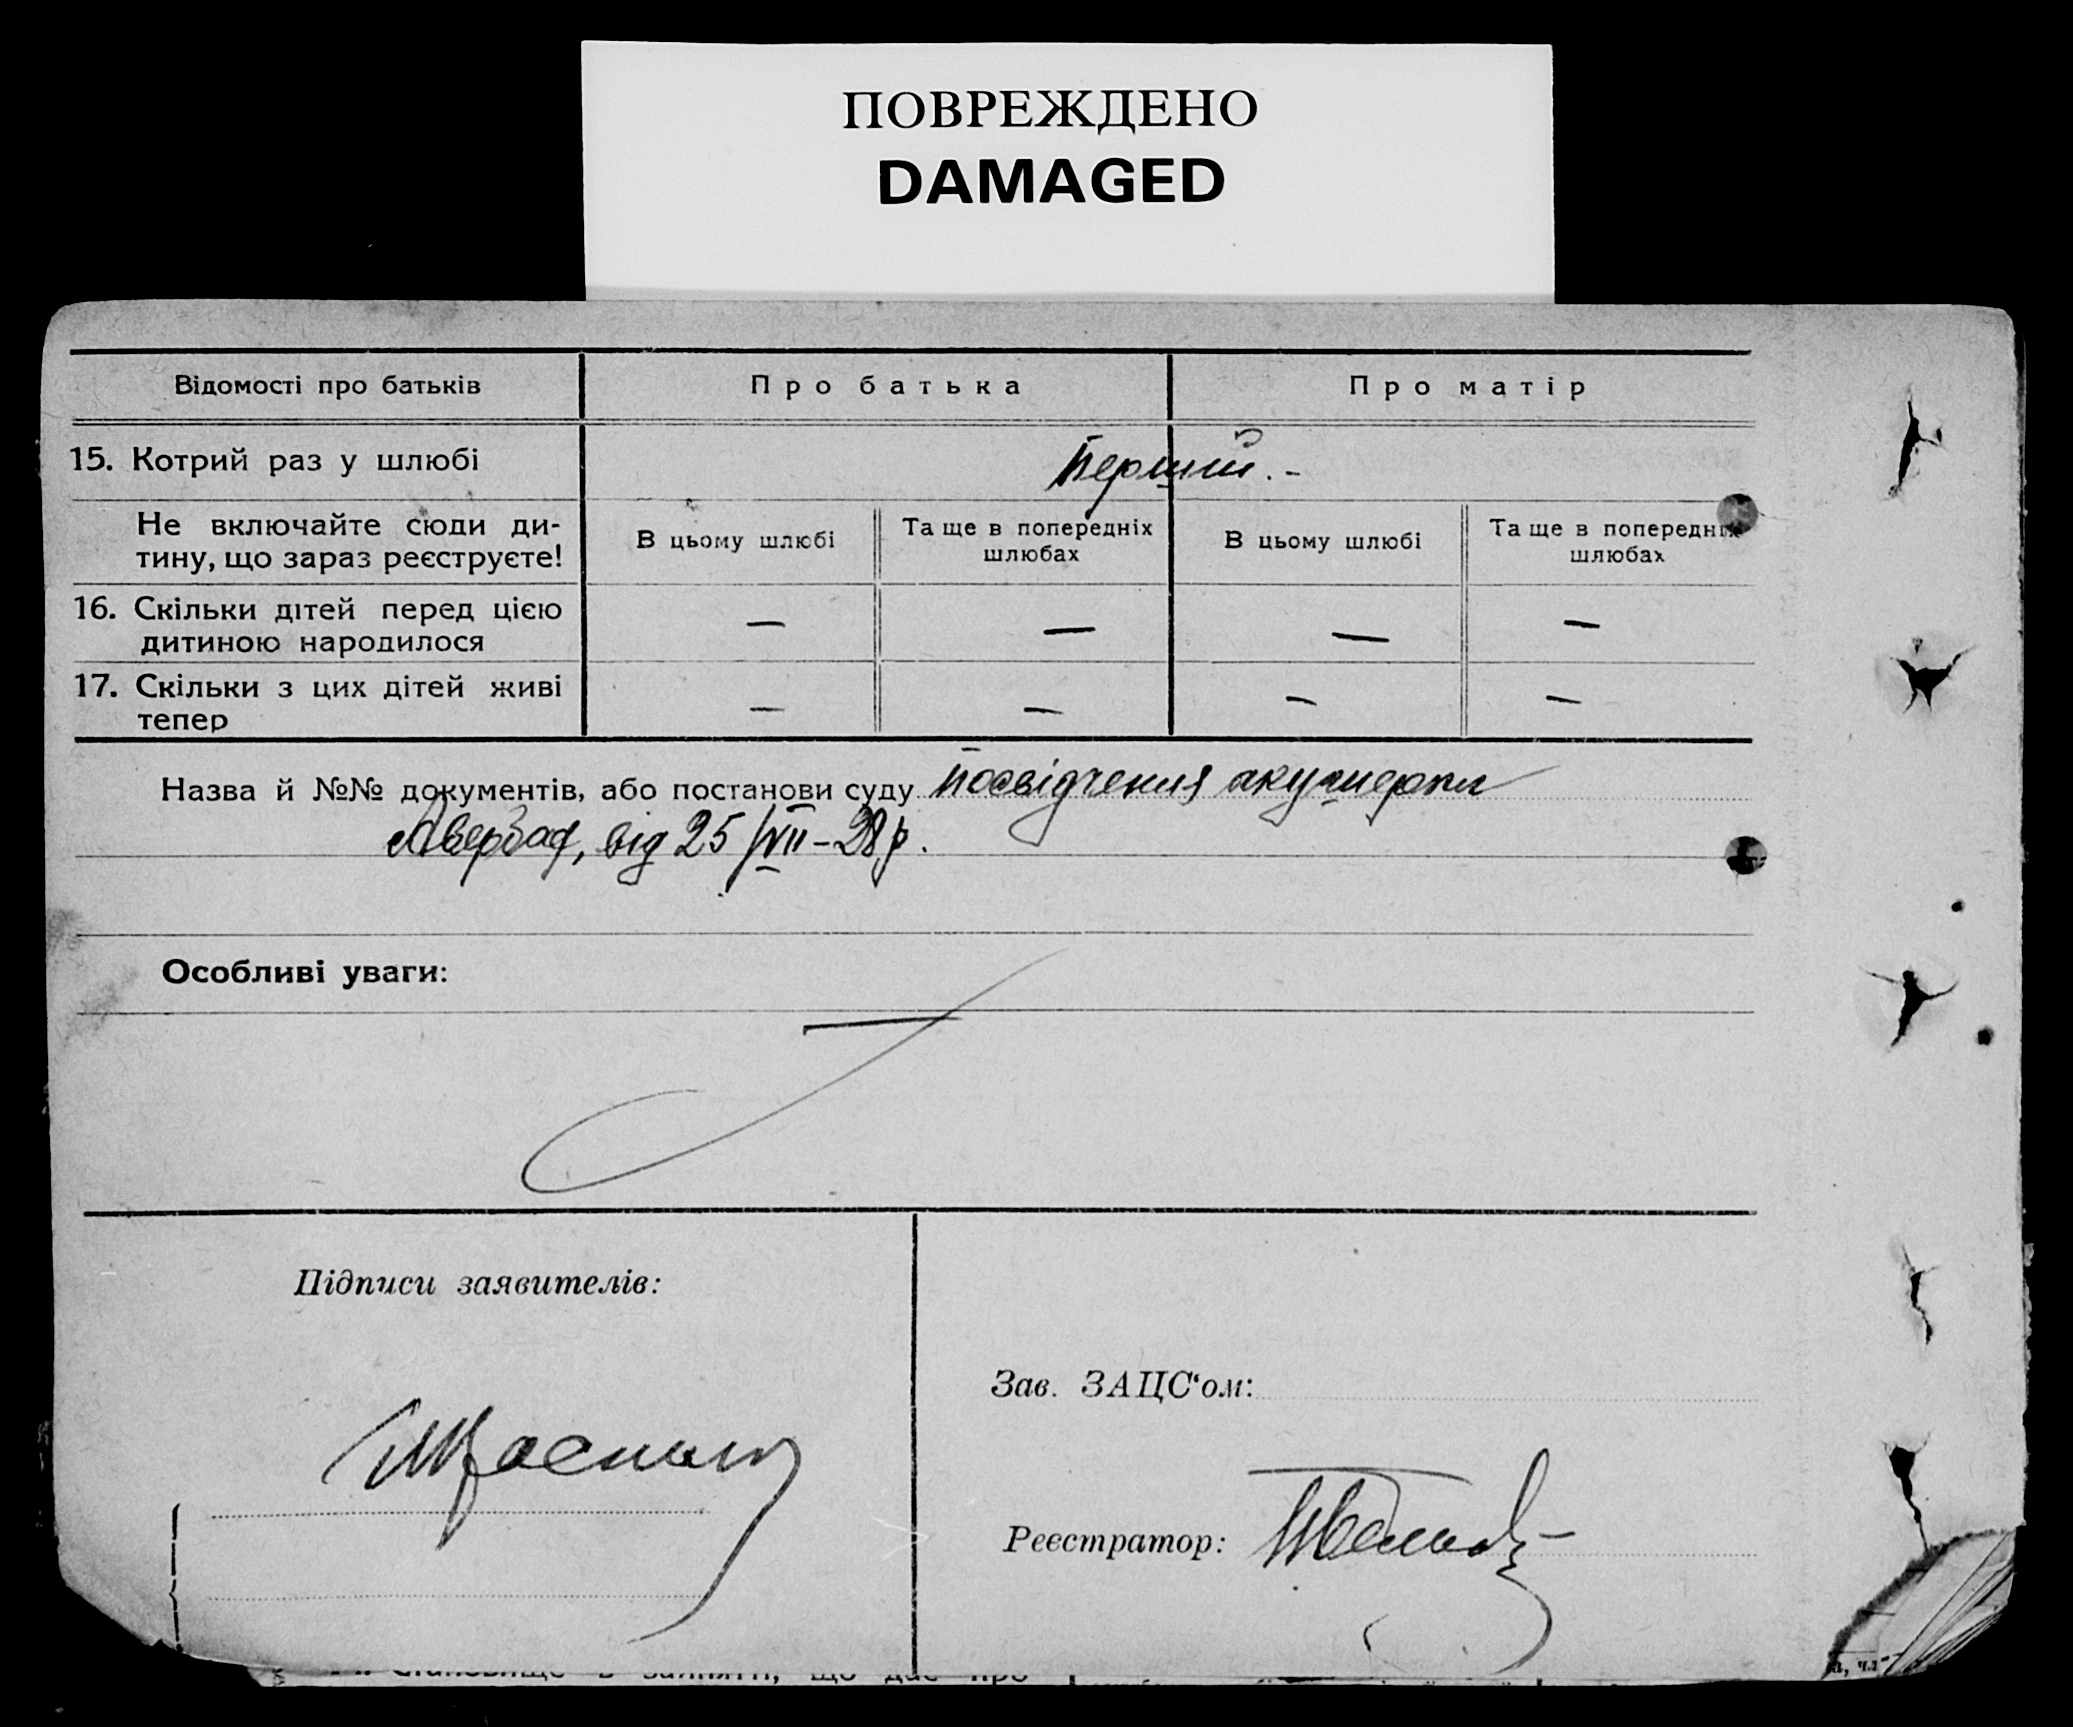 ПОВРЕЖДЕНО
DAMAGED
Відомості про батьків
Про батька
Про матір
15. Котрий раз у шлюбі
Перший. -
Не включайте сюди ди-
тину, що зараз реєструєте!
В цьому шлюбі
Та ще в попередніх
шлюбах
В цьому шлюбі
Та ще в попередніх
шлюбах
16. Скільки дітей перед цією
дитиною народилося
— — — —
17. Скільки з цих дітей живі
тепер
— — — —
Назва й №№ документів, або постанови суду посвідчення акушерки
від 25/VII - 28 р.
Особливі уваги:
—
Підписи заявителів:
Зав. ЗАЦС‘ом:
Реєстратор: